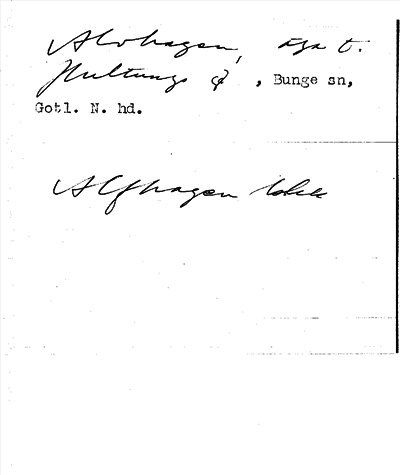 Alvhagen, äga t.
Hultungs gd, Bunge sn,
Gotl. N. hd.
Alfhagen